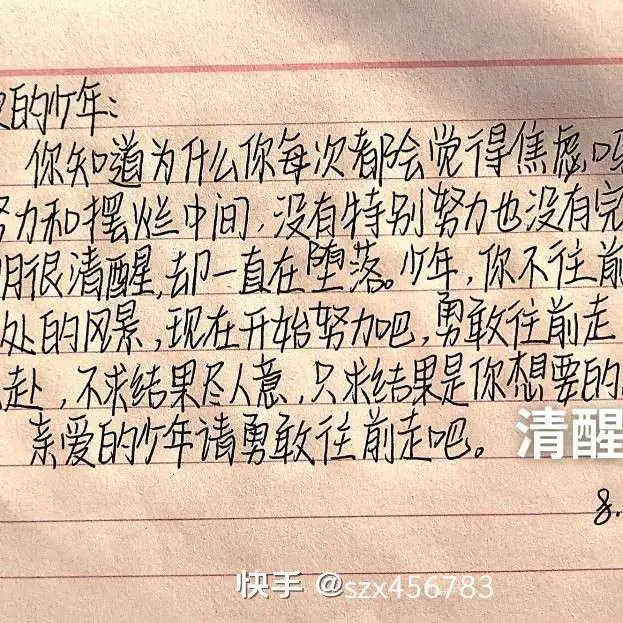 的少年:
你知道为什么你每次都会觉得焦虑吗
努力和摆烂中间,没有特别努力也没有完
明很清醒,却一直在堕落。少年,你不往前
处的风景,现在开始努力吧,勇敢往前走
赴,不求结果尽人意,只求结果是你想要的
亲爱的少年请勇敢往前走吧。
清醒
8.
快手 @szx456783